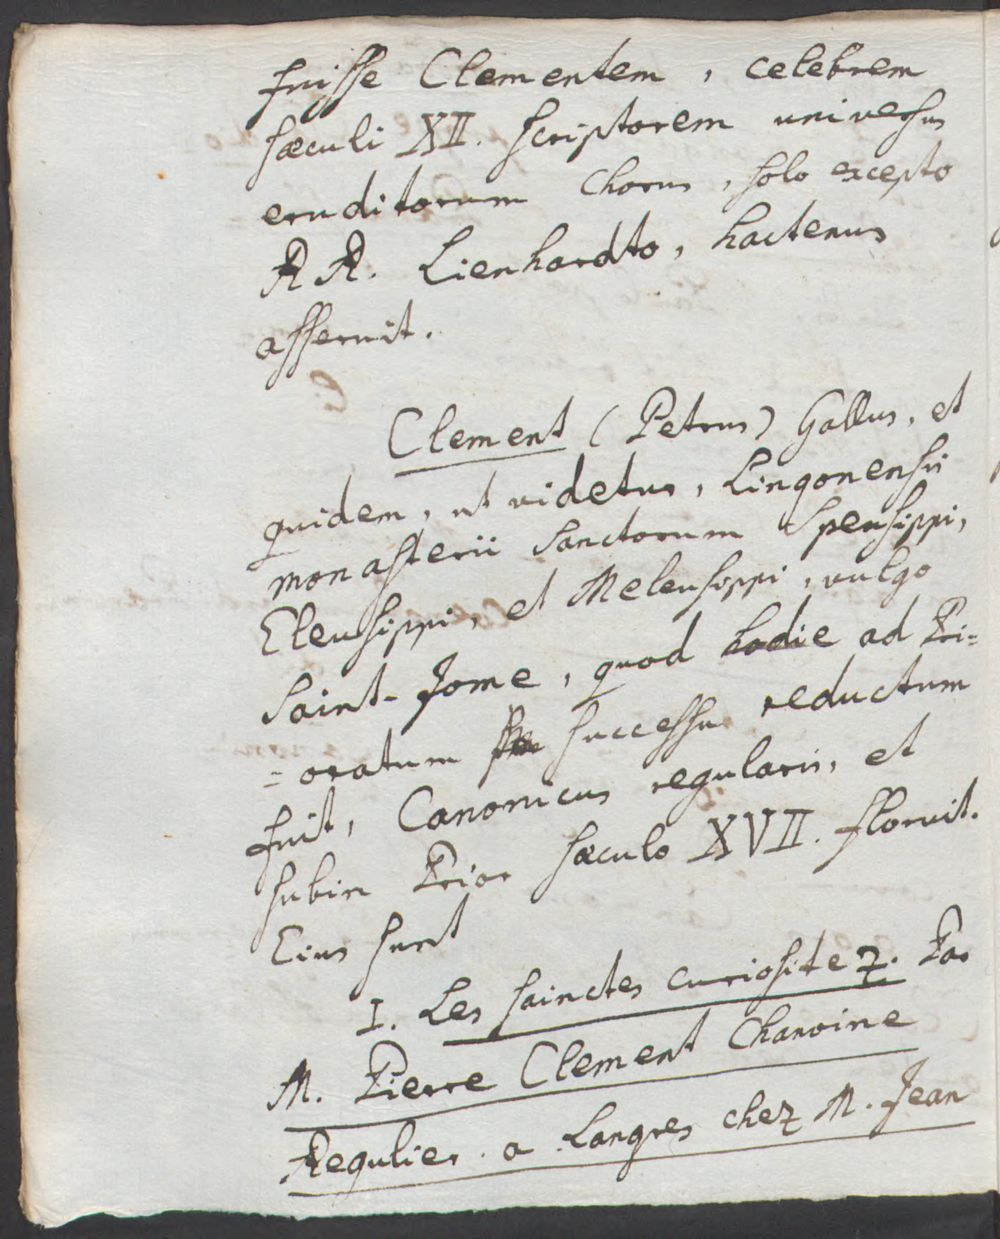 fuisse Clementem, celebrem
sæculi XII. scriptorem universus
eruditorum chorus, solo excepto
RR. Lienhardto, hactenus
asseruit.
Clement (Petrus) Gallus, et
quidem, ut videtur, Lingonensis
monasterii Sanctorum Speusippi,
Eleusippi, et Meleusippi, vulgo
Saint-Jome, quod hodie ad Pri=
=oratum successu reductum
fuit, Canonicus regularis, et
subin Prior sæculo XVII. floruit.
Eius sunt
I. Les sainctes curiositez. Par
M. Pierre Clement Chanoine
Regulier. a Langres chez M. Jean